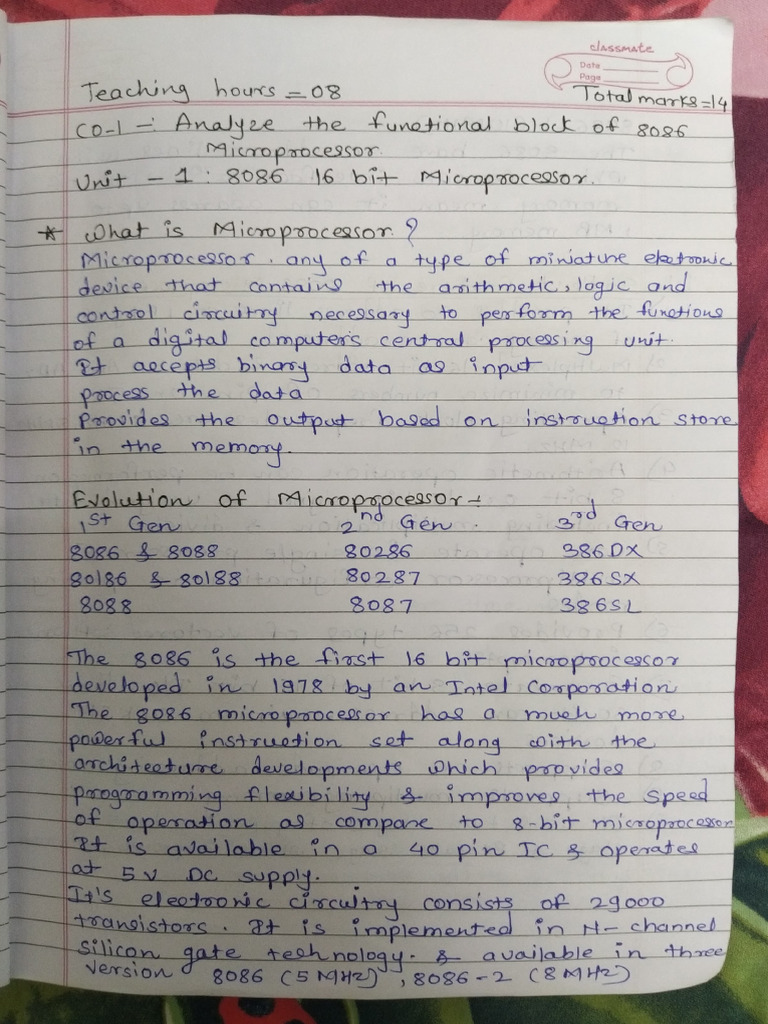 classmate
Date
Page
Teaching hours = 08
Total marks = 14
CO-1 - : Analyze the functional block of 8086
Microprocessor.
Unit - 1 : 8086 16 bit Microprocessor.
* What is Microprocessor ?
Microprocessor . any of a type of miniature electronic
device that contains the arithmetic, logic and
control circuitry necessary to perform the functions
of a digital computers central processing unit.
It accepts binary data as input
process the data
Provides the output based on instruction store
in the memory.
Evolution of Microprocessor :-
1st Gen 2nd Gen . 3rd Gen
8086 & 8088 80286 386DX
80186 & 80188 80287 386SX
8088 8087 386SL
The 8086 is the first 16 bit microprocessor
developed in 1978 by an Intel Corporation
The 8086 microprocessor has a much more
powerful instruction set along with the
architecture developments which provides
programming flexibility & improves the speed
of operation as compare to 8-bit microprocessor
It is available in a 40 pin IC & operates
at 5v DC supply.
It's electronic circuitry consists of 29000
transistors . It is implemented in N- channel
silicon gate technology. & available in three
version 8086 (5 MHz) , 8086-2 (8 MHz)